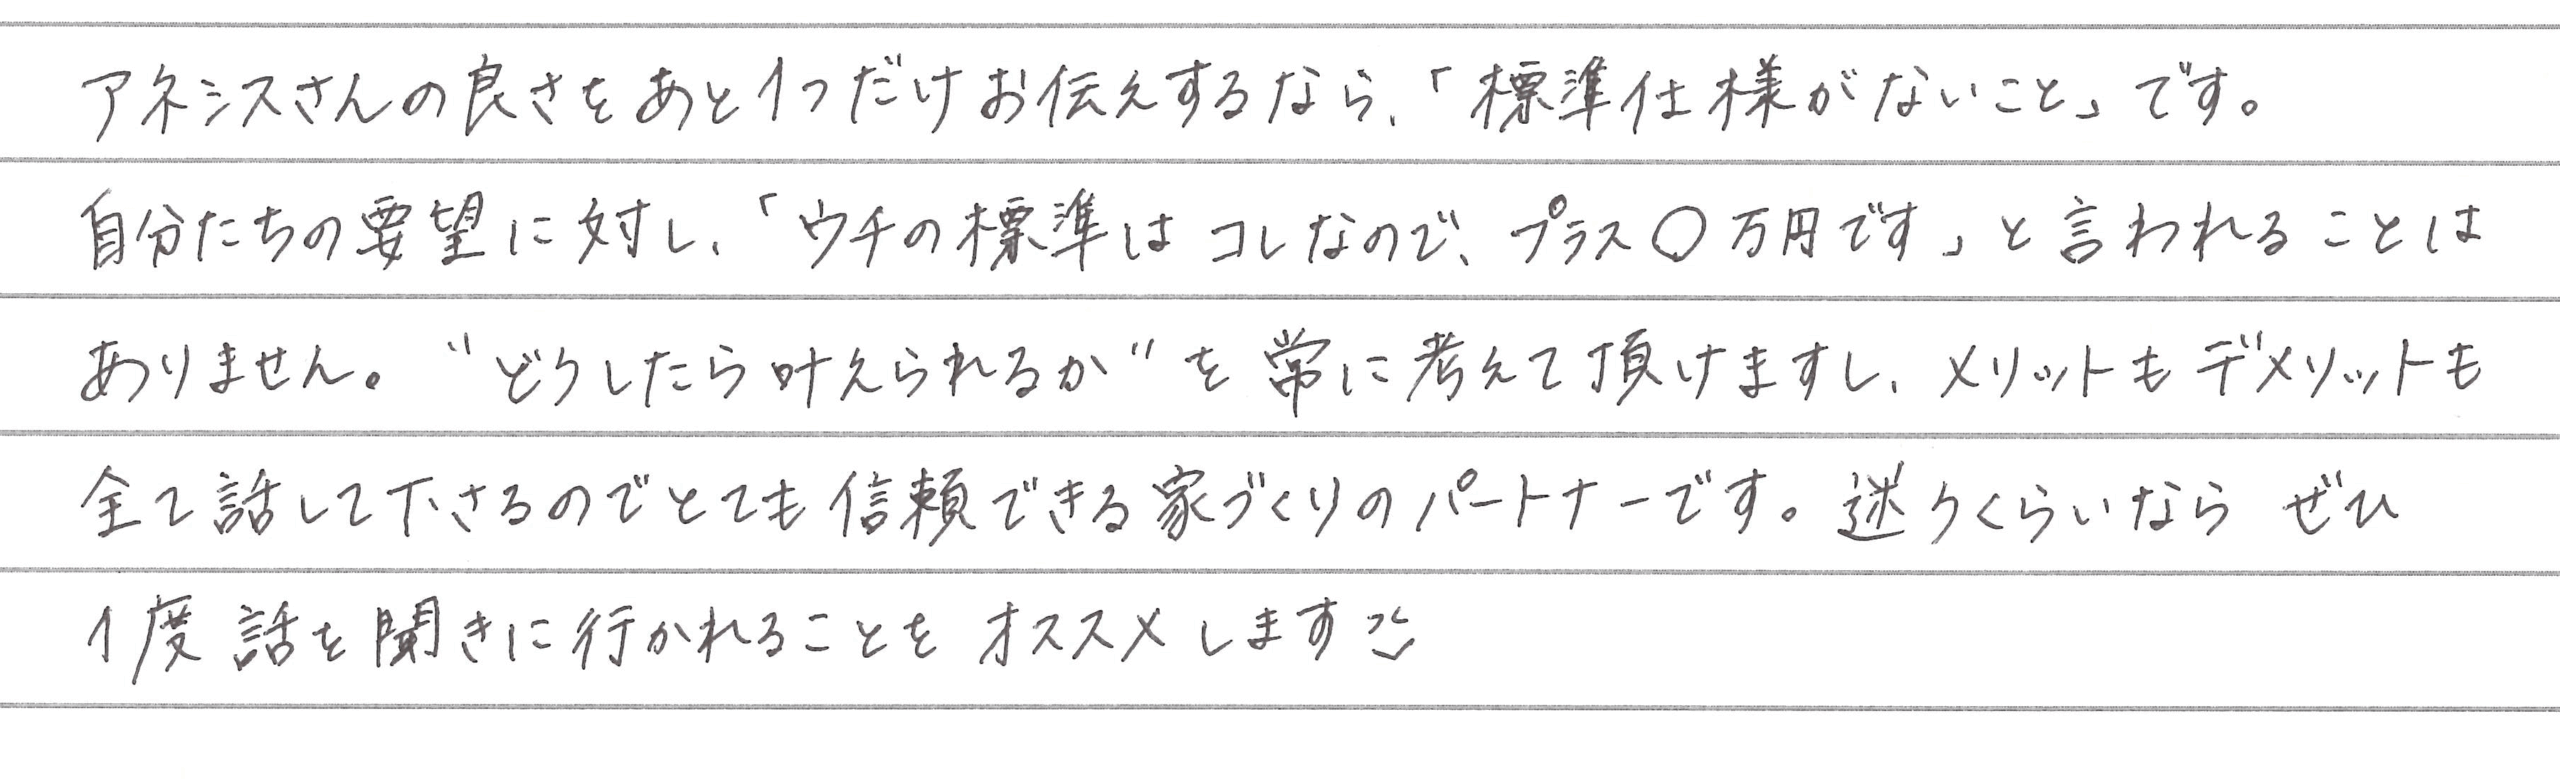 アネシスさんの良さをあと1つだけお伝えするなら、「標準仕様がないこと」です。
自分たちの要望に対し、「ウチの標準はコレなので、プラス〇万円です」と言われることは
ありません。"どうしたら叶えられるか"を常に考えて頂けますし、メリットもデメリットも
全て話して下さるのでとても信頼できる家づくりのパートナーです。迷うくらいならぜひ
1度話を聞きに行かれることをオススメします